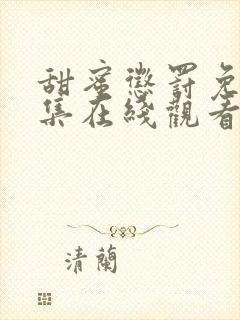 甜蜜懲罰免
集在綫觀看
清蘭